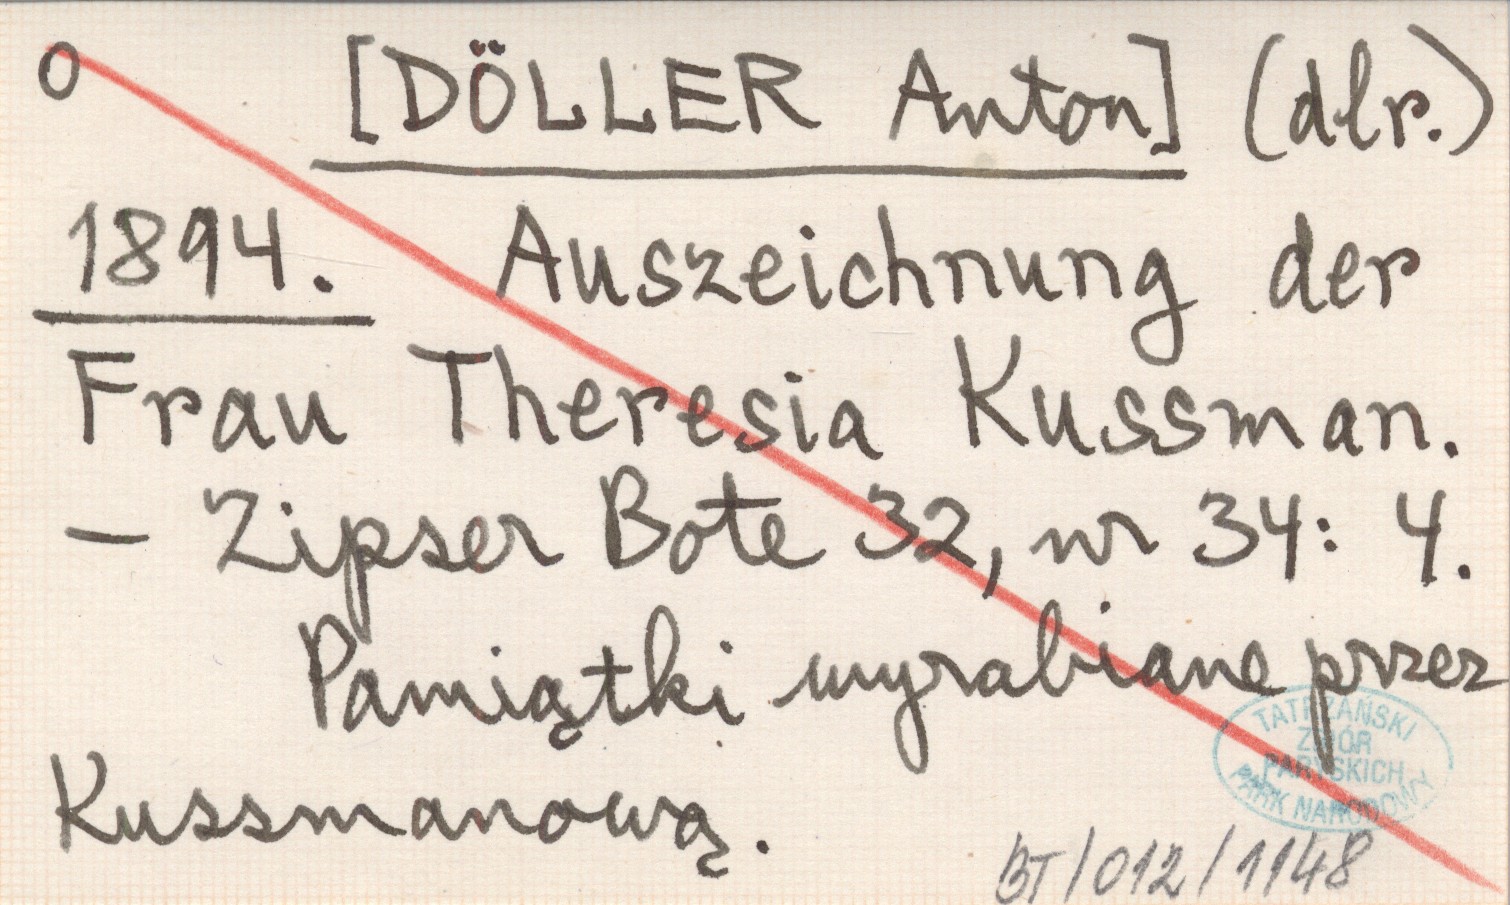 O [DÖLLER Anton] (dlr.)
1894. Auszeichnung der
Frau Theresia Kussman.
– Zipser Bote 32, nr 34: 4.
Pamiątki wyrabiane przez
Kussmanową.
TATRZAŃSKI
ZBIÓR
PARYSKICH
PARK NARODOWY
BT/012/1148